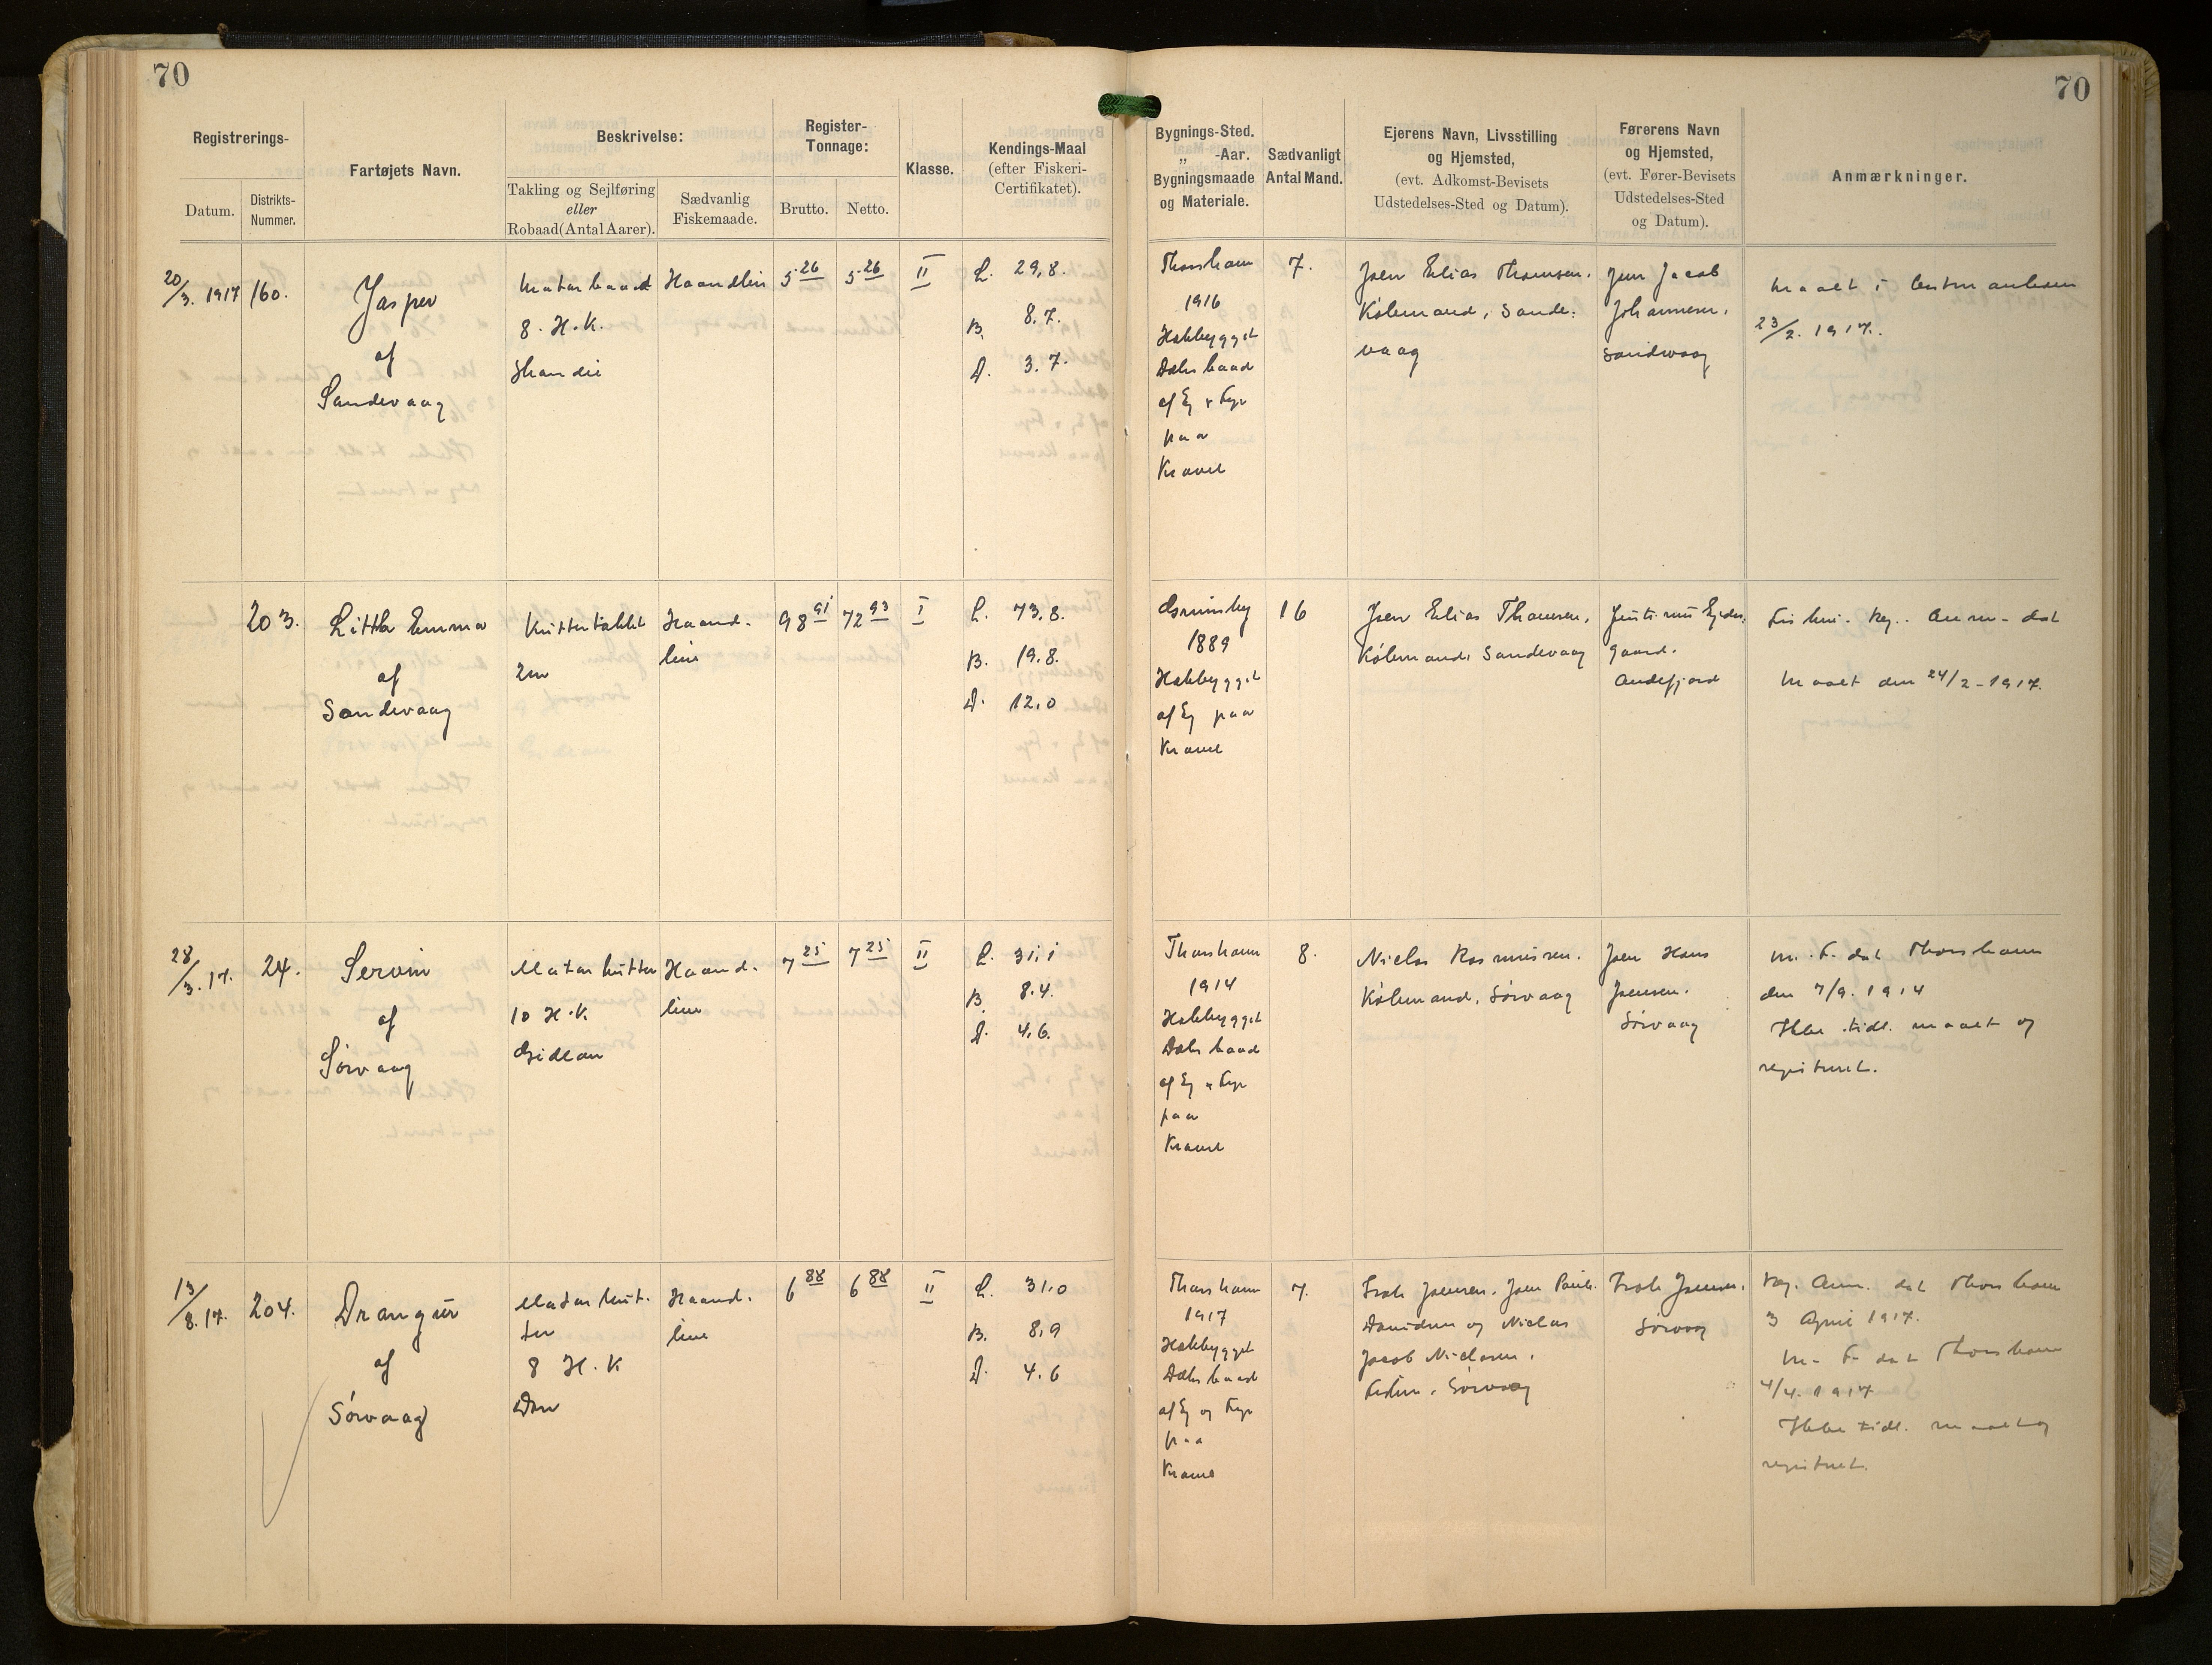 70
70
Registrerings-
Datum.
Distrikts-
Nummer.
Fartøjets Navn.
Beskrivelse:
Takling og Sejlføring
eller
Robaad (Antal Aarer).
Sædvanlig
Fiskemaade.
Register-
Tonnage:
Brutto.
Netto.
Klasse.
Kendings-Maal
(efter Fiskeri-
Certifikatet).
Bygnings-Sted.
„ -Aar.
Bygningsmaade
og Materiale.
Sædvanligt
Antal Mand.
Ejerens Navn, Livsstilling
og Hjemsted,
(evt. Adkomst-Bevisets
Udstedelses-Sted og Datum).
Førerens Navn
og Hjemsted,
(evt. Fører-Bevisets
Udstedelses-Sted
og Datum).
Anmærkninger.
20/3. 1917
160.
Jasper
af
Sandevaag
Motorbaad
8. H.K.
Skandia
Haandlin
5 26
5 26
II
L. 29,8.
B. 8.7.
D. 3.7.
Thorshavn
1916
Hækbygget
Dæksbaad
af Eg & Fyr
paa
Kravel
7.
Joen Elias Thomsen.
Købmand, Sande-
vaag
Jens Jacob
Johannesen.
Sandevaag
Maalt i
23/2. 1917.
203.
Little Emma
af
Sandevaag
Kuttertaklet
2m
Haand-
line
98 91
72 93
I
L. 73,8.
B. 19.8.
D. 12.0
Grimsby
1889
Hækbygget
af Eg paa
Kravel
16
Joen Elias Thomsen.
Købmand, Sandevaag
Justinus Ejdes-
gaard.
Andefjord
Fiskeri. Reg. Anm. dat
Maalt den 24/2 - 1917.
28/3. 17.
24.
Servin
af
Sørvaag
Motorkutter
10 H.K.
Gideon
Haand-
line
7 25
7 25
II
L. 31,1
B. 8.4.
D. 4.6.
Thorshavn
1914
Hækbygget
Dæksbaad
af Eg & Fyr
paa
Kravel
8.
Niclas Rasmussen.
Købmand, Sørvaag
Joen Hans
Joensen.
Sørvaag
M. F. dat Thorshavn
den 7/9. 1914
Ikke tidl. maalt og
registreret.
13/8. 17.
204.
Drangur
af
Sørvaag
Motorkut-
ter
8 H.K
Dan
Haand-
line
6 88
6 88
II
L. 31.0
B. 8,9
D. 4.6
Thorshavn
1917
Hækbygget
Dæksbaad
af Eg og Fyr
paa
Kravel
7.
Joensen. Joen Pauli
Davidsen og Niclas
Jacob Niclasen.
Sørvaag
Joensen.
Sørvaag
Reg. Anm. dat Thorshavn
3 April 1917.
M. F. dat Thorshavn
4/4. 1917
Ikke tidl. maalt og
registreret.